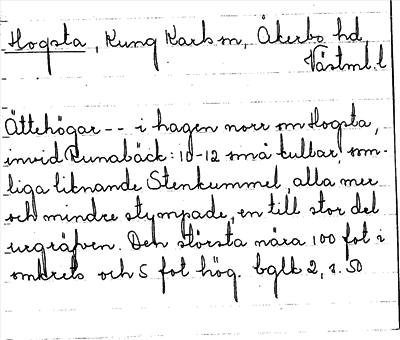 Hogsta, Kung Karls sn, Åkerbo hd
Västml. l
Ättehögar -- i hagen norr om Hogsta,
invid Runabäck: 10-12 små kullar, som-
liga liknande Stenkummel, alla mer
och mindre stympade, en till stor del
urgräfven. Den största nära 100 fot i
omkrets och 5 fot hög. bglk 2, s. 50